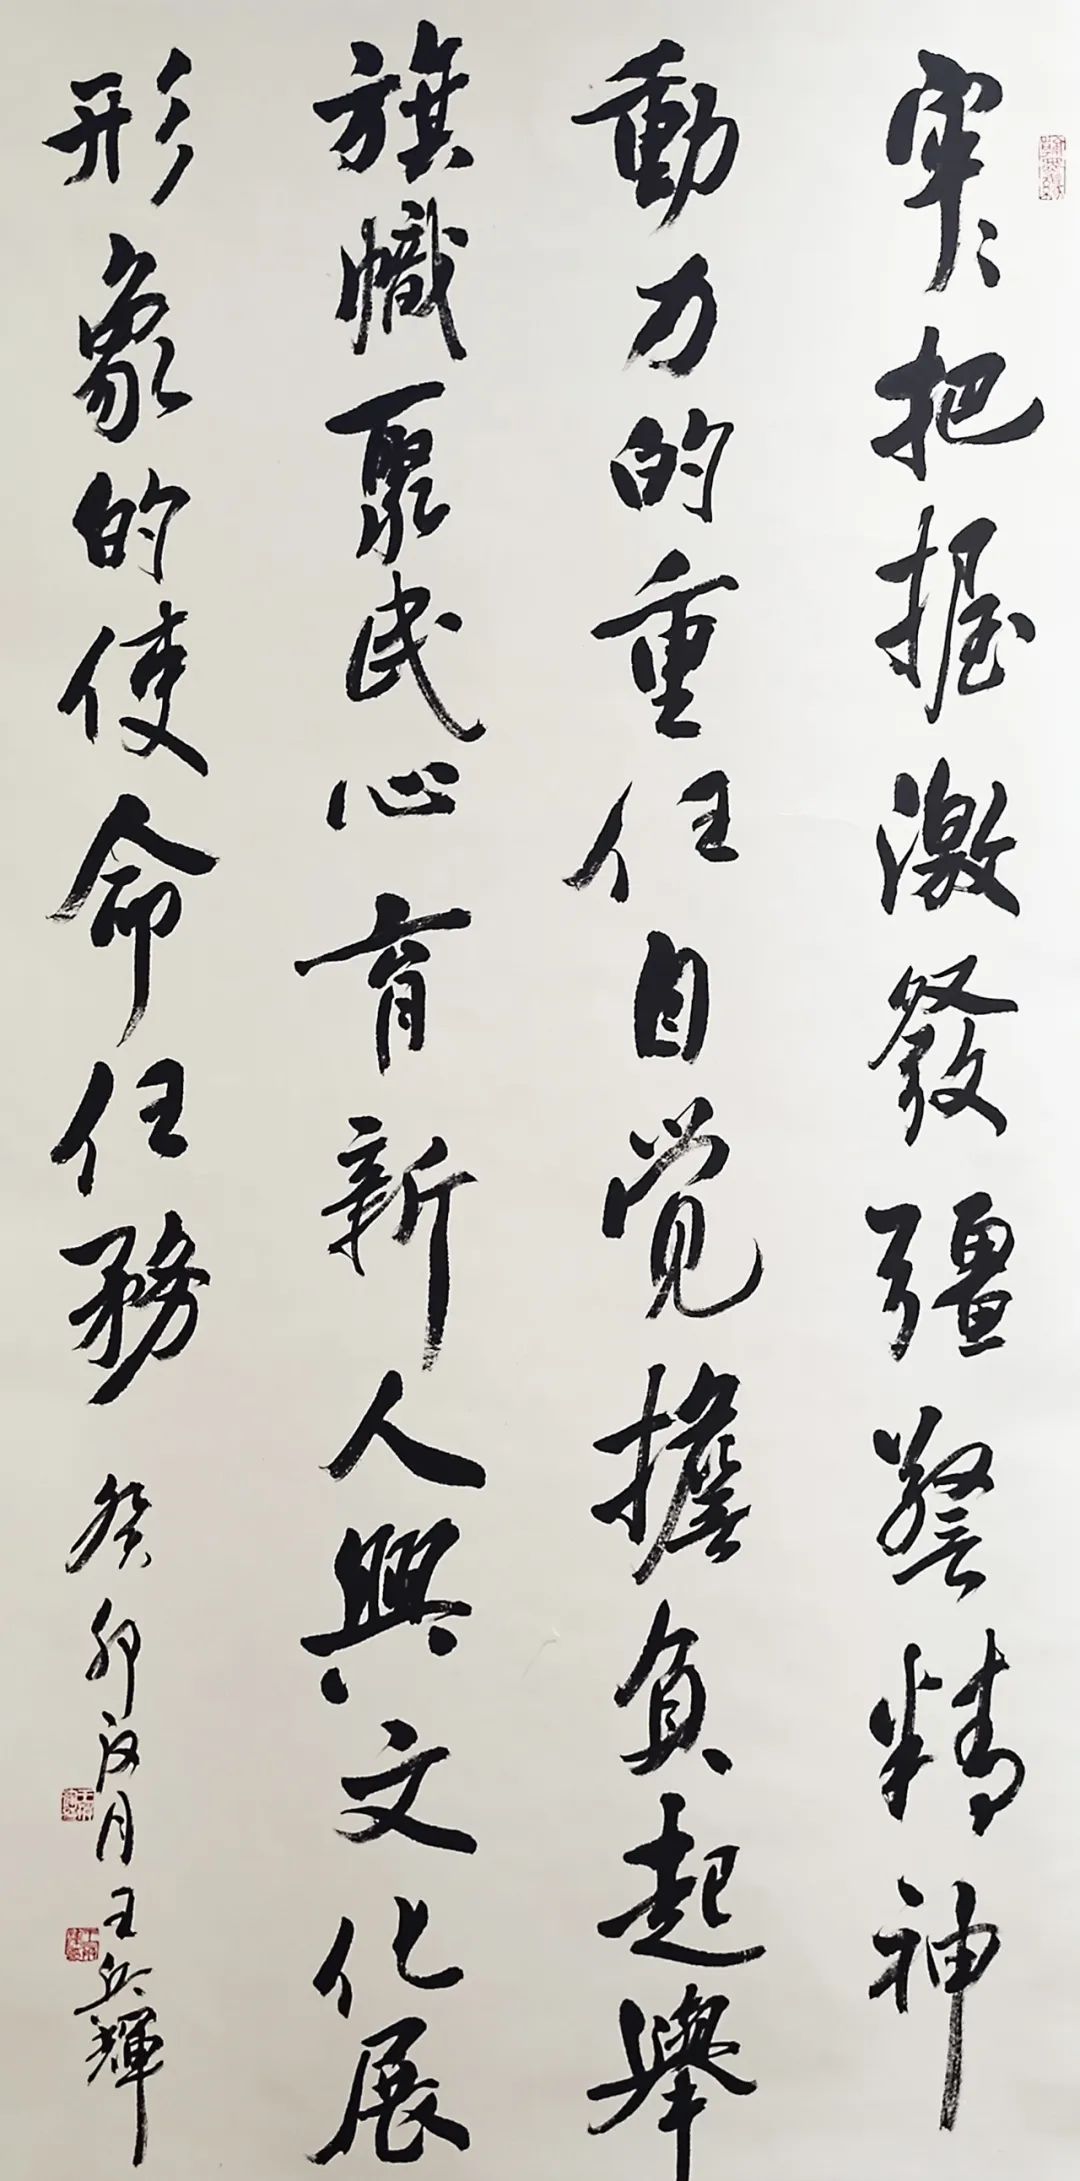 牢〻把握激發疆警精神
動力的重任自觉擔負起舉
旗幟聚民心育新人興文化展
形象的使命任務
癸卯汉月王兵輝